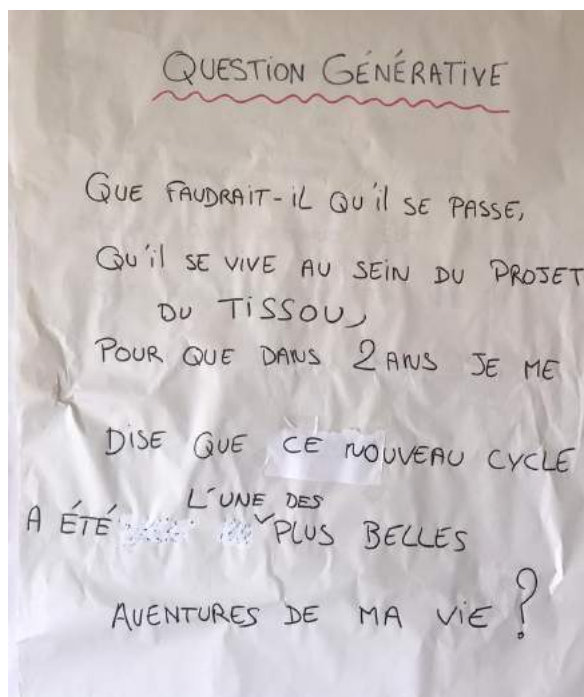 QUESTION GÉNÉRATIVE
QUE FAUDRAIT-IL QU'il SE PASSE,
QU'il SE VIVE AU SEIN DU PROJET
DU TISSOU,
POUR QUE DANS 2 ANS JE ME
DISE QUE CE NOUVEAU CYCLE
A ÉTÉ L'UNE DES PLUS BELLES
AVENTURES DE MA VIE ?